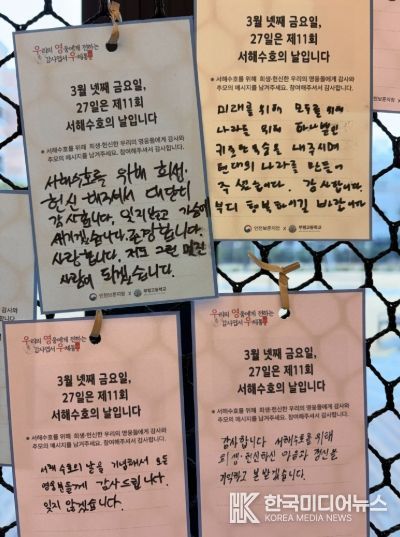 우리의 영웅에게 전하는
감사엽서 우체통
3월 넷째 금요일,
27일은 제11회
서해수호의 날입니다
※ 서해수호를 위해 희생·헌신한 우리의 영웅들에게 감사와
추모의 메시지를 남겨주세요. 참여해주셔서 감사합니다.
서해수호를 위해 희생,
헌신 해주셔서 대단히
감사합니다. 잊지않고 가슴에
새기겠습니다. 존경합니다.
사랑합니다. 저도 그런 멋진
사람이 되겠습니다.
인천보훈지청 부평고등학교
3월 넷째 금요일,
27일은 제11회
서해수호의 날입니다
※ 서해수호를 위해 희생·헌신한 우리의 영웅들에게 감사와
추모의 메시지를 남겨주세요. 참여해주셔서 감사합니다.
미래를 위해 모두를 위해
나라를 위해 하나뿐인
귀중한 목숨을 내주시며
현대의 나라를 만들어
주셨습니다. 감사합니다.
부디 행복하시길 바랍니다
인천보훈지청 부평고등학교
우리의 영웅에게 전하는
감사엽서 우체통
3월 넷째 금요일,
27일은 제11회
서해수호의 날입니다
※ 서해수호를 위해 희생·헌신한 우리의 영웅들에게 감사와
추모의 메시지를 남겨주세요. 참여해주셔서 감사합니다.
서해 수호의 날을 기념해서 모든
영웅분들께 감사드립니다.
잊지 않겠습니다.
우리의 영웅에게 전하는
감사엽서 우체통
3월 넷째 금요일,
27일은 제11회
서해수호의 날입니다
※ 서해수호를 위해 희생·헌신한 우리의 영웅들에게 감사와
추모의 메시지를 남겨주세요. 참여해주셔서 감사합니다.
감사합니다 서해수호를 위해
희생·헌신하신 마음과 정신을
기억하고 본받겠습니다.
HK 한국미디어뉴스
KOREA MEDIA NEWS